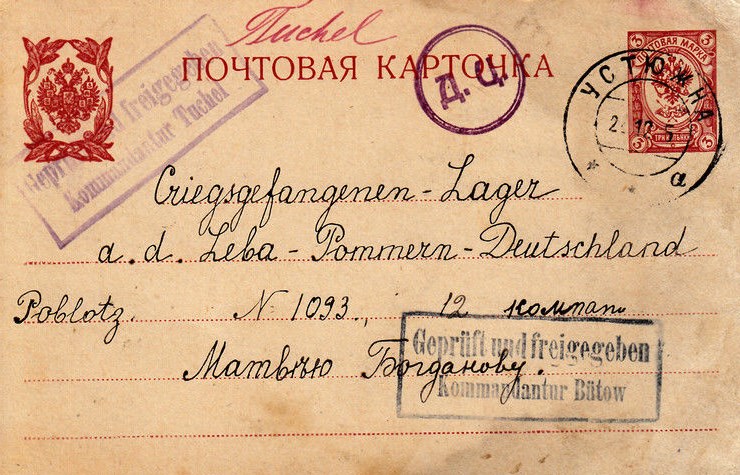 Tuchel
ПОЧТОВАЯ КАРТОЧКА
Geprüft und freigegeben
Kommandantur Tuchel
Д.Ц.
ПОЧТОВАЯ МАРКА
3 3
3 3
УСТЮЖНА
а
Criegsgefangenen-Lager
a. d. Leba-Pommern-Deutschland
Poblotz. N 1093., 12 компан
Матвѣю Богданову.
Geprüft und freigegeben
Kommandantur Bütow